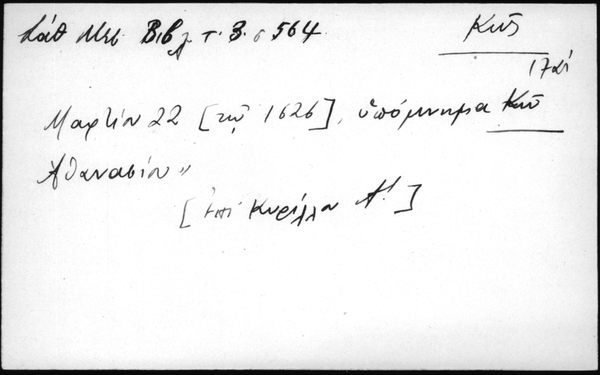 Κάθ Μεσ. Βιβλ. τ. 3. σ 564.
Κῶς
Μαρτίου 22 [τῷ 1626], ὑπόμνημα Κῶ
Ἀθανασίου"
[ἐπί Κυρίλλου Α!]